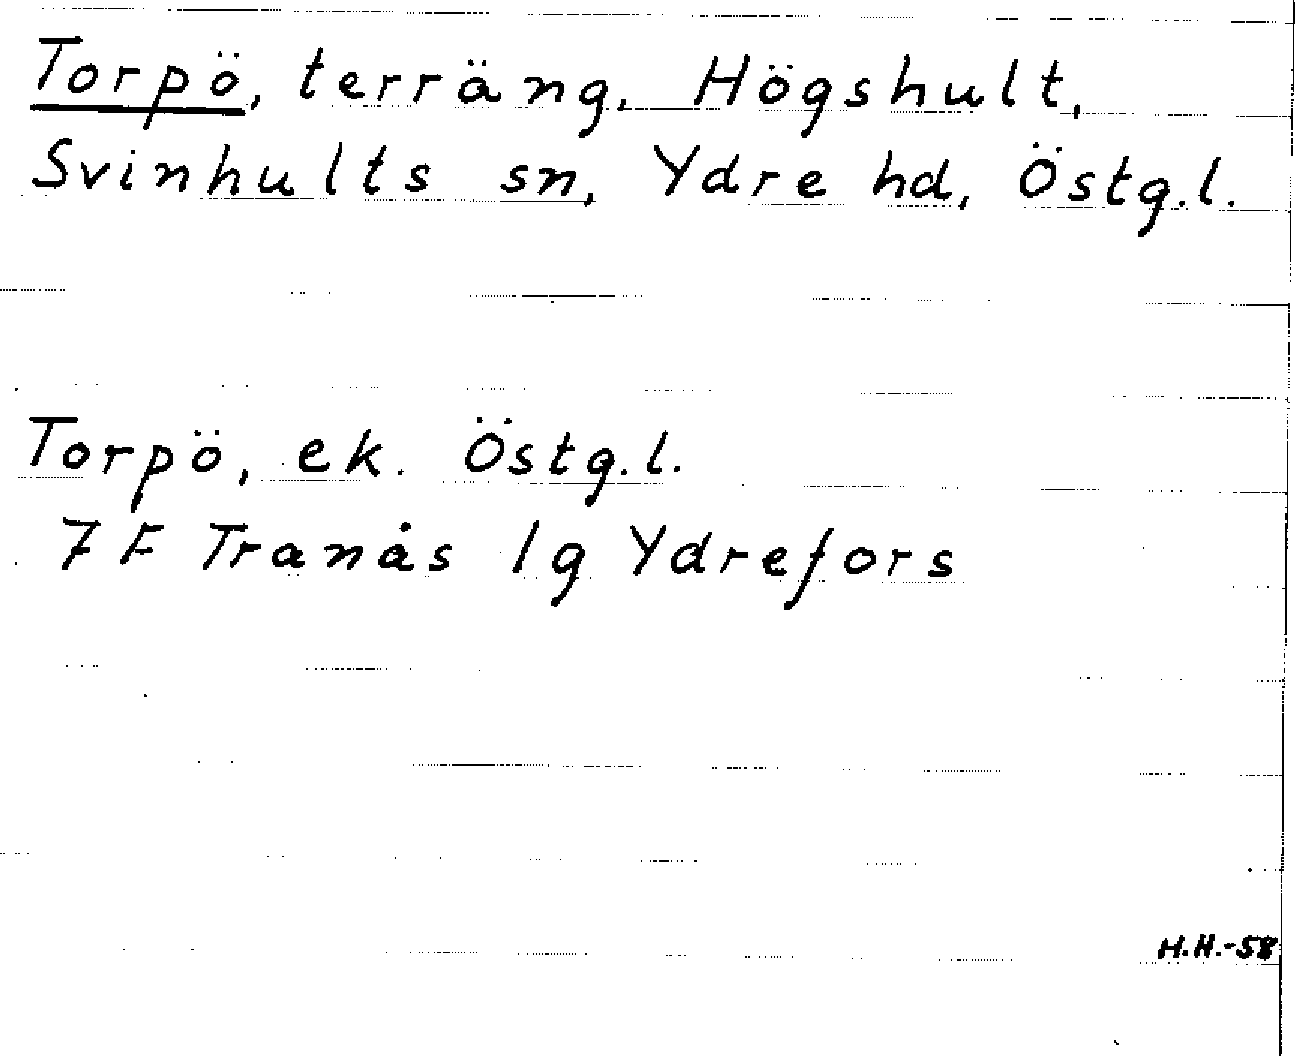 Torpö, terräng, Högshult,
Svinhults sn, Ydre hd, Östg.l.
Torpö, ek. Östg.l.
7 F Tranås 1g Ydrefors
H.H.-58